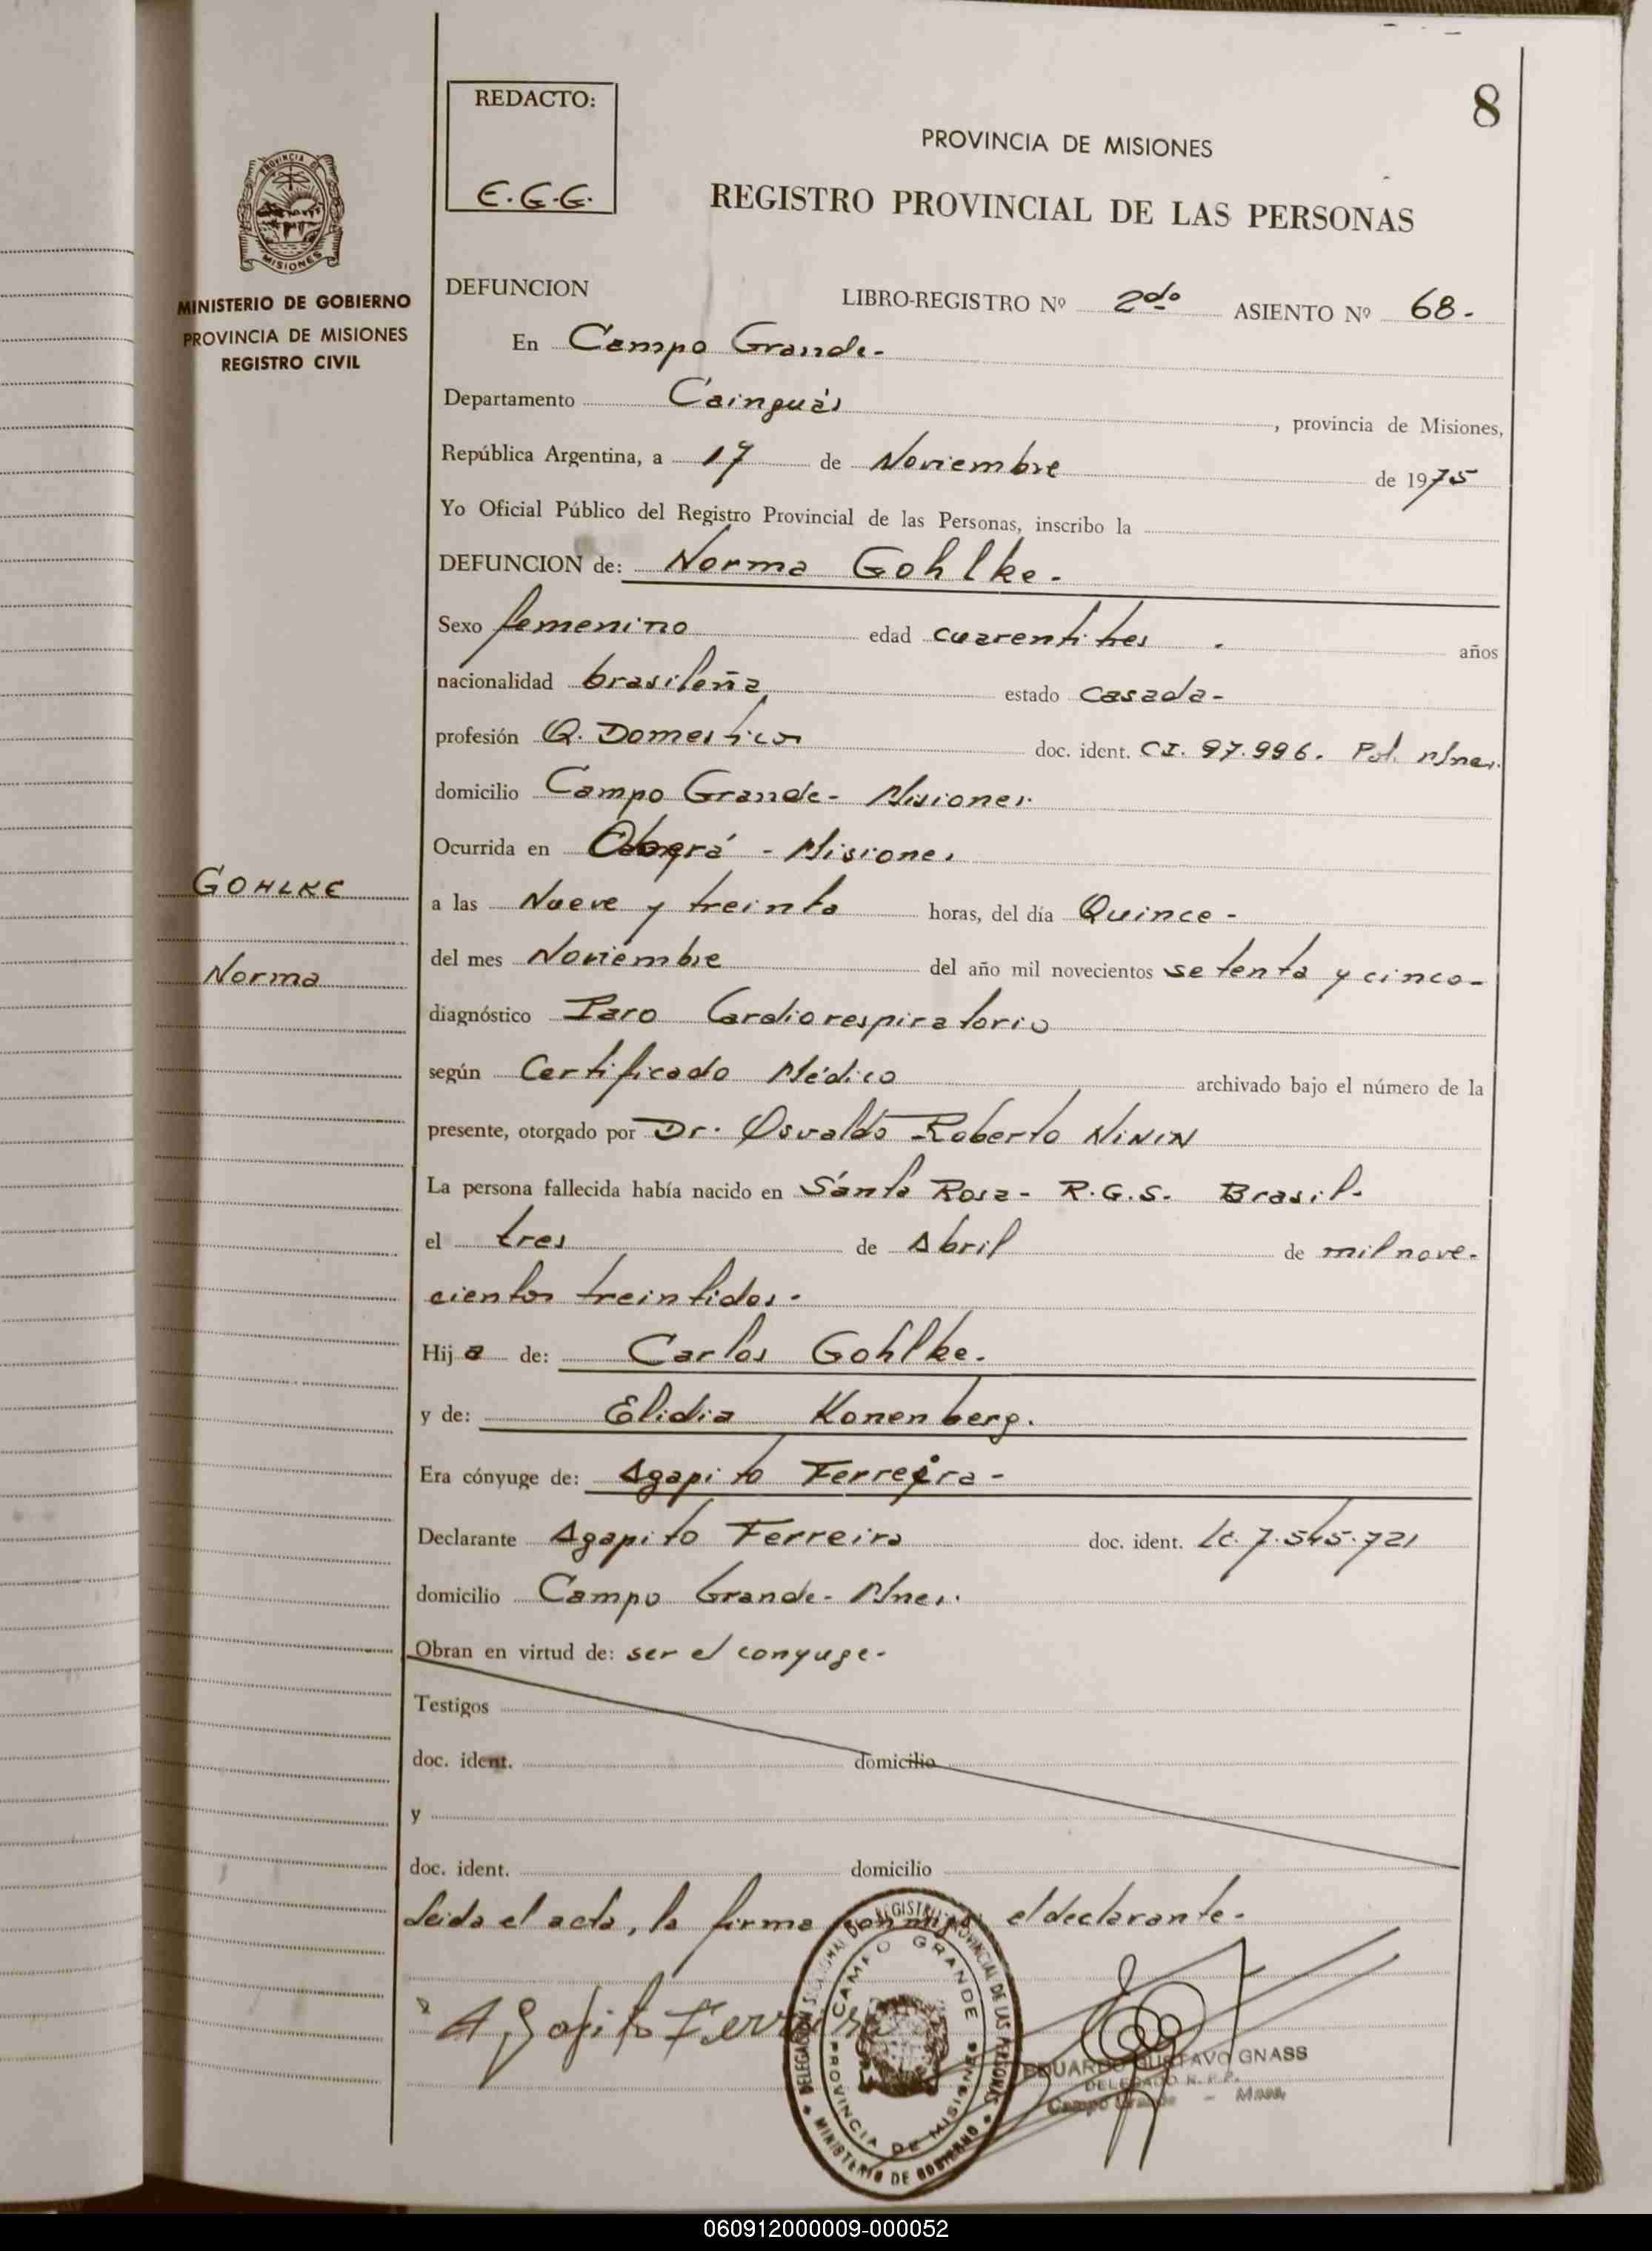 8
REDACTO:
E.G.G.
PROVINCIA DE MISIONES
REGISTRO PROVINCIAL DE LAS PERSONAS
PROVINCIA DE
MISIONES
MINISTERIO DE GOBIERNO
PROVINCIA DE MISIONES
REGISTRO CIVIL
DEFUNCION LIBRO-REGISTRO Nº 2do ASIENTO Nº 68.
En Campo Grande-
Departamento Cainguás, provincia de Misiones,
República Argentina, a 17 de Noviembre de 1975
Yo Oficial Público del Registro Provincial de las Personas, inscribo la
DEFUNCION de: Norma Gohlke.
Sexo femenino edad cuarentitres. años
nacionalidad brasileña estado casada-
profesión Q. Domesticos doc. ident. CI. 97.996. Pol. Mnes.
domicilio Campo Grande- Misiones.
Ocurrida en Oberá - Misiones
GOHLKE
a las Nueve y treinta horas, del día Quince-
del mes Noviembre del año mil novecientos setenta y cinco-
Norma
diagnóstico Paro Cardiorespiratorio
según Certificado Médico archivado bajo el número de la
presente, otorgado por Dr. Osvaldo Roberto NININ
La persona fallecida había nacido en Santa Rosa- R.G.S. Brasil-
el tres de Abril de mil nove-
cientos treintidos.
Hija de: Carlos Gohlke.
y de: Elidia Konenberg.
Era cónyuge de: Agapito Ferreira-
Declarante Agapito Ferreira doc. ident. LE. 7.545.721
domicilio Campo Grande- Mnes.
Obran en virtud de: ser el conyuge-
Testigos
doc. ident. domicilio
y
doc. ident. domicilio
Leida el acta, la firma conmigo el declarante-
Agapito Ferreira
DELEGACION SECCIONAL DEL REGISTRO PROVINCIAL DE LAS PERSONAS
CAMPO GRANDE
PROVINCIA DE MISIONES
MINISTERIO DE GOBIERNO
EDUARDO GUSTAVO GNASS
DELEGADO R. P. P.
Campo Grande - Mnes.
060912000009-000052